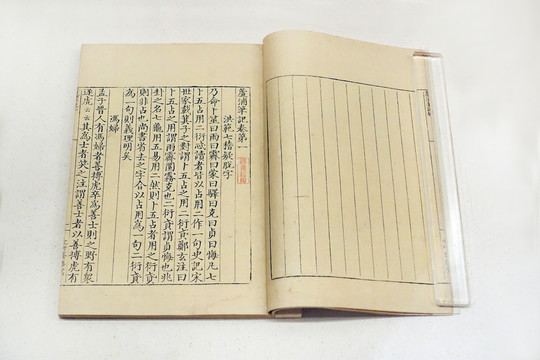 蘆浦筆記卷第一
洪範七稽疑脫字
乃命卜筮曰雨曰霽曰蒙曰驛曰克曰貞曰悔凡七
卜五占用二衍忒讀者皆以占用二作一句史記宋
世家載箕子之對謂卜五占之用二衍貣鄭玄注曰
卜五占之用謂雨霽圛霧克也二衍貣謂貞悔也兆
卦之名七龜用五易用二然則卜五占者用之衍貣
則非占也尚書省去之字合以占用為一句二衍貣
為一句則義理明矣
馮婦
孟子晉人有馮婦者善搏虎卒為善士則之野有衆
逐虎云云其為士者笑之注謂善士者以善搏虎有